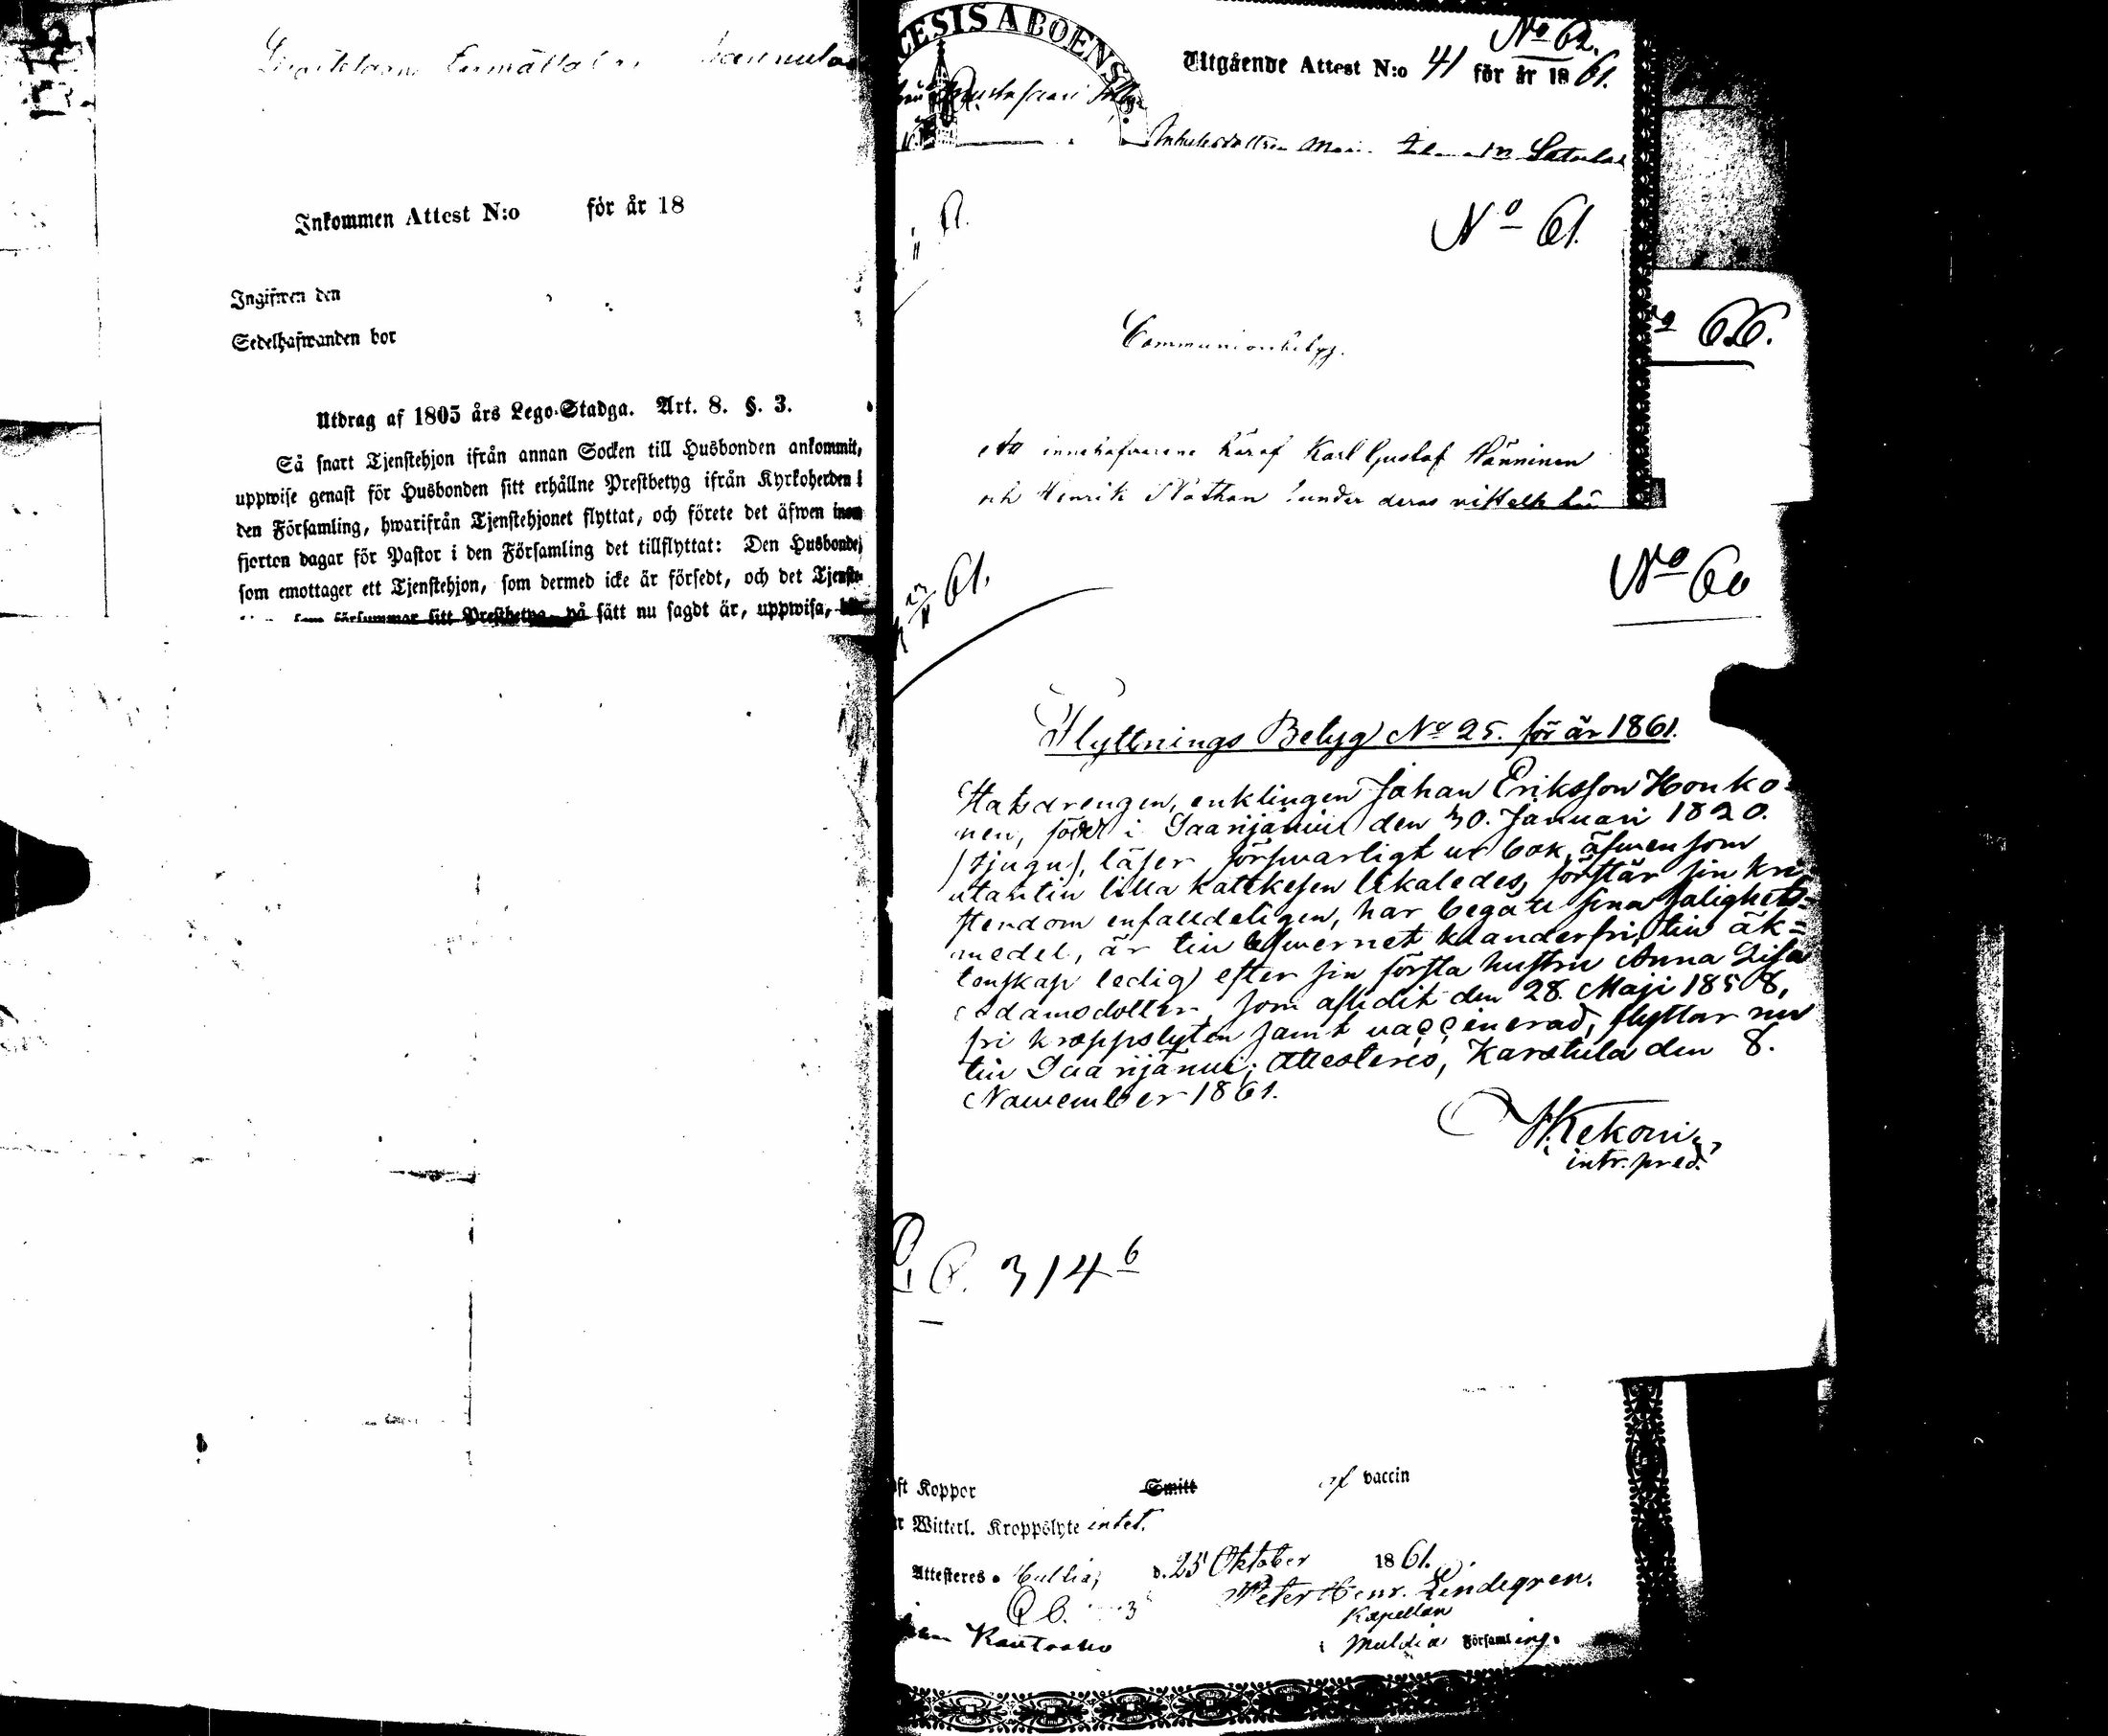 Inkommen Attest N:o för år 18
Ingifwen den
Sedelhafwanden bor
Utdrag af 1805 års Lego-Stadga. Art. 8. §. 3.
Så snart Tjenstehjon ifrån annan Socken till Husbonden ankommit,
uppwise genast för Husbonden sitt erhållne Prestbetyg ifrån Kyrkoherden i
den Församling, hwarifrån Tjenstehjonet flyttat, och förete det äfwen inom
fjorton dagar för Pastor i den Församling det tillflyttat: Den Husbonde,
som emottager ett Tjenstehjon, som dermed icke är försedt, och det Tjenste-
som försummar sitt Prestbetyg, på sätt nu sagdt är, uppwisa,
CESIS ABOENS
No 62.
Utgående Attest N:o 41 för år 1861.
No 61.
Communionbetyg.
innehafvarene häraf Karl Gustaf Hänninen
och Henrik Nathan under deras
66.
61.
No 60
Flyttnings Betyg No 25. för år 1861.
Statsdrengen, enklingen Johan Eriksson Honko-
nen, född i Saarijärvi den 30. Januari 1820.
(tjugu), läser försvarligt ur bok, äfwensom
utantill lilla katekesen likaledes, förstår sin kri-
stendom enfalldeligen, har begått sina salighets-
medel, är till lefwernet klanderfri, till äk-
tenskap ledig efter sin första hustru Anna Lisa
Adamsdotter, som aflidit den 28. Maji 1858,
fri kroppslyten samt vaccinerad, flyttar nu
till Saarijärvi; Attesteres, Karstula den 8.
November 1861.
Kekoni
intr. pred.
314 6
Koppor Smitt af vaccin
Witterl. Kroppslyte intet.
Attesteres d. 25 Oktober 1861.
Peter Henr. Lindegren.
Kapellan
Muldia Församling.
Rautaaho